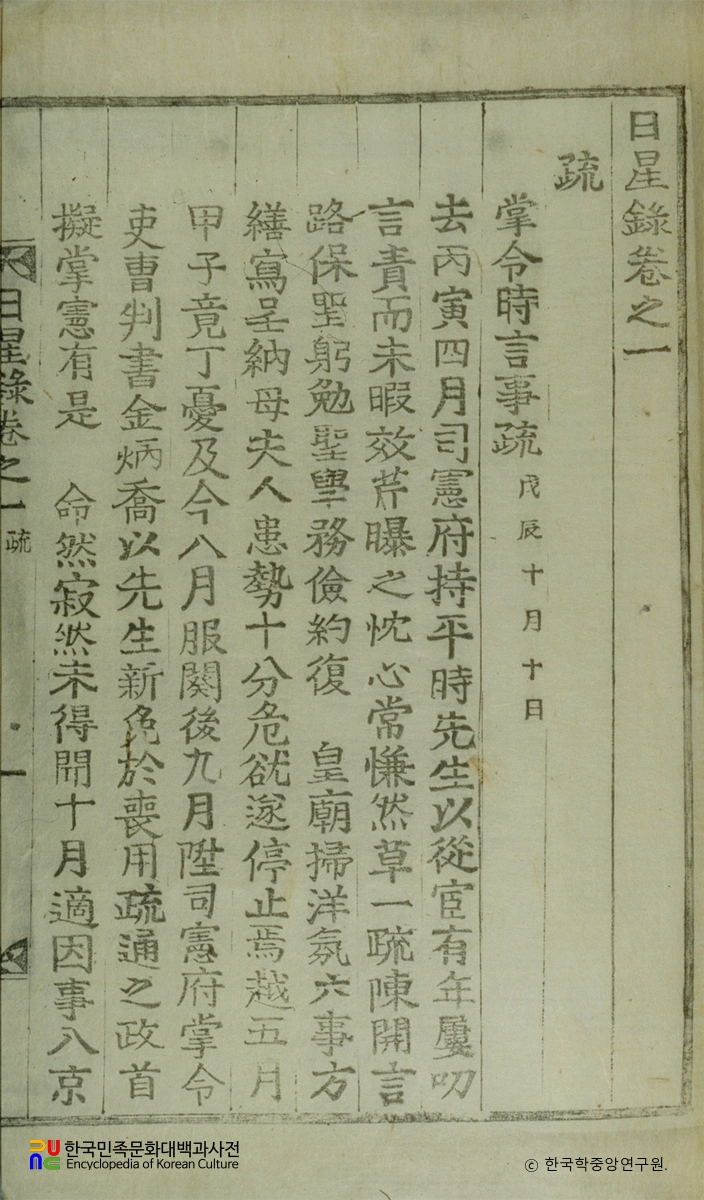 日星錄卷之一
疏
掌令時言事疏 戊辰十月十日
去丙寅四月司憲府持平時先生以從宦有年屢叨
言責而未暇效芹曝之忱心常慊然草一疏陳開言
路保聖躬勉聖學務儉約復 皇廟掃洋氛六事方
繕寫呈納母夫人患勢十分危欲遂停止焉越五月
甲子竟丁憂及今八月服闋後九月陞司憲府掌令
吏曹判書金炳喬以先生新免於喪用疏通之政首
擬掌憲有是 命然寂然未得聞十月適因事入京
日星錄卷之一 疏 一
한국민족문화대백과사전
Encyclopedia of Korean Culture
© 한국학중앙연구원.